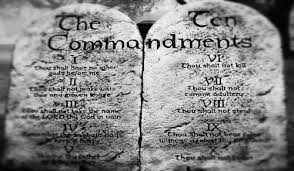 The Ten
Commandments
I
Thou shalt have no other
gods before me
II
Thou shalt not make unto
thee any graven image
III
Thou shalt not take the name
of the LORD thy God in vain
IV
Remember the sabbath day
to keep it holy
VI
Thou shalt not kill
VII
Thou shalt not
commit adultery
VIII
Thou shalt not steal
IX
Thou shalt not bear
witness against thy